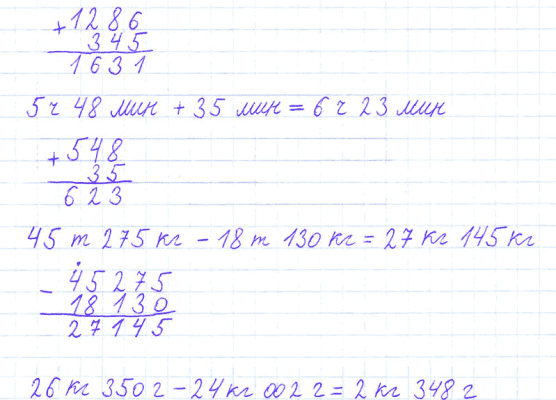 +1286
345
1631
5 ч 48 мин + 35 мин = 6 ч 23 мин
+548
35
623
45 т 275 кг - 18 т 130 кг = 27 кг 145 кг
- 45275
18130
27145
26 кг 350 г - 24 кг 002 г = 2 кг 348 г